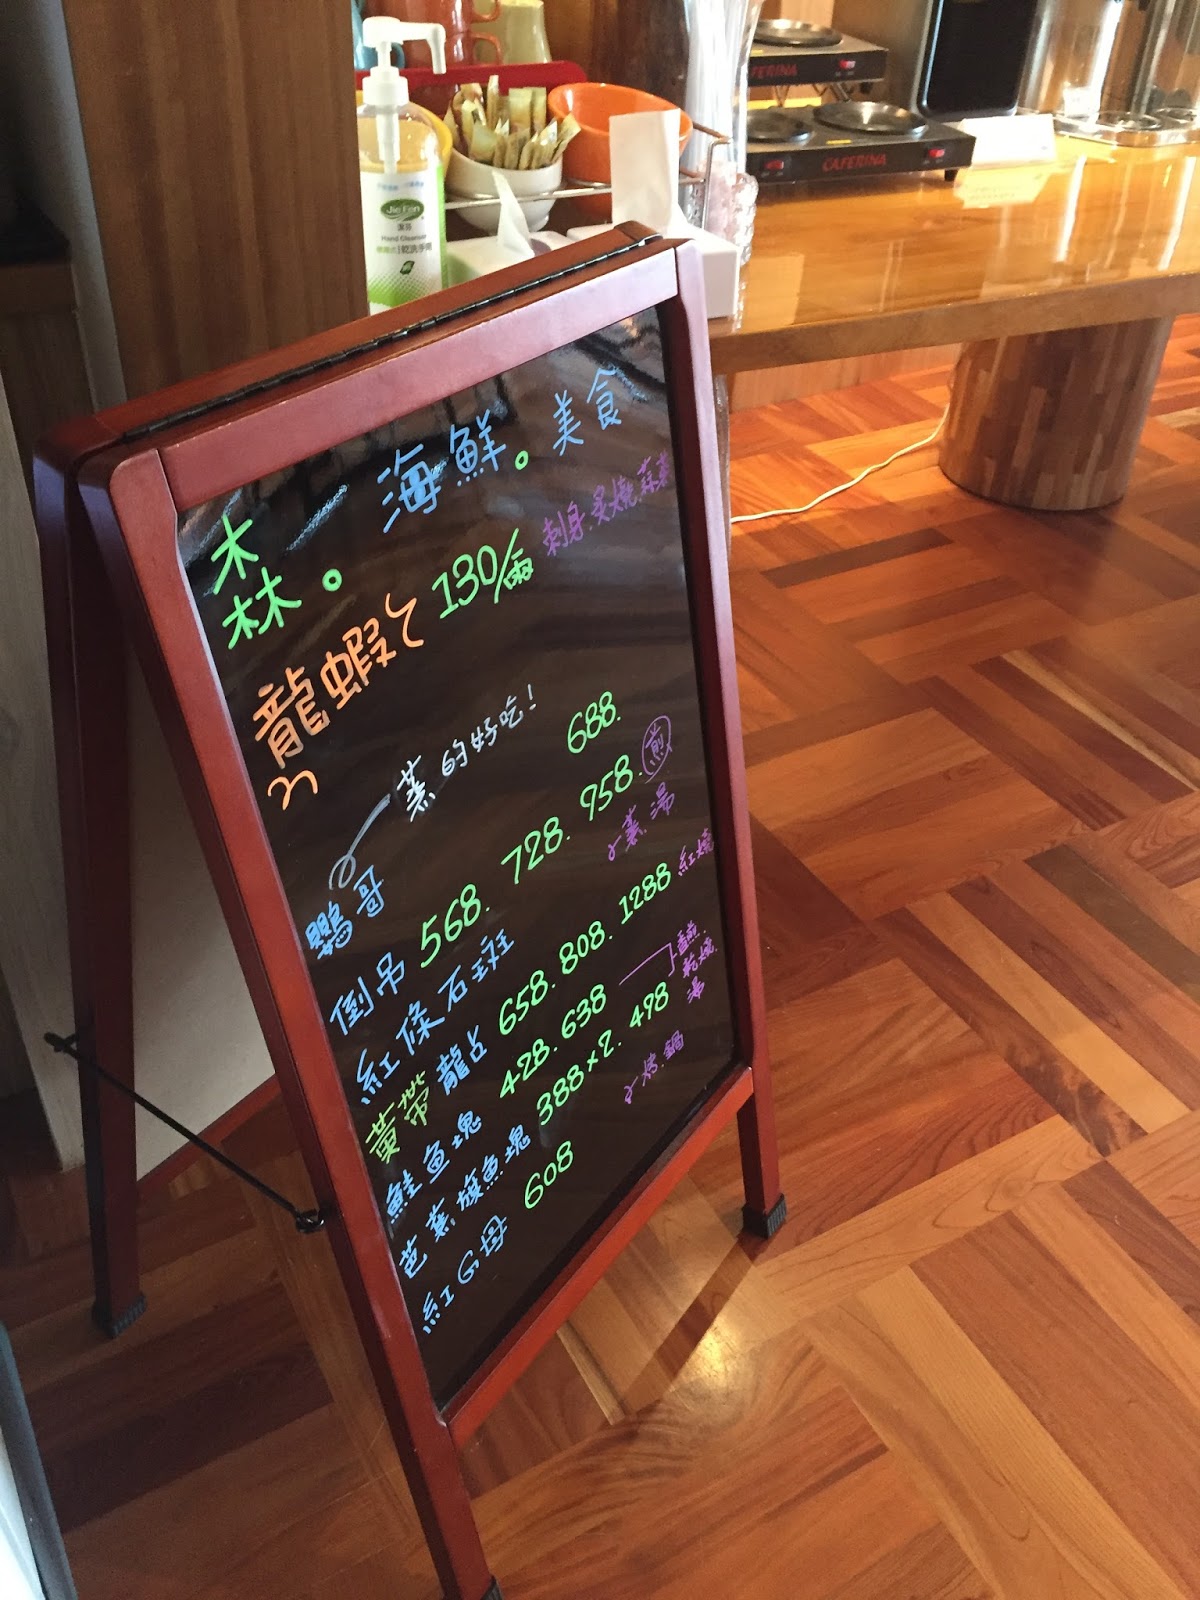 CAFERINA
CAFERINA
Jie Fen
潔芬
Hand Cleanser
乾洗手
森。海鮮。美食
龍蝦 130/兩 刺身.炙燒.蒜蒸
蒸的好吃!
鸚哥 688.
倒吊 568. 728. 958. 煎
紅條石斑 蒸.湯
黃帶龍占 658. 808. 1288 紅燒
鮭魚塊 428. 638
芭蕉旗魚塊 388×2. 498 乾燒.
湯
紅G母 608 烤.鍋